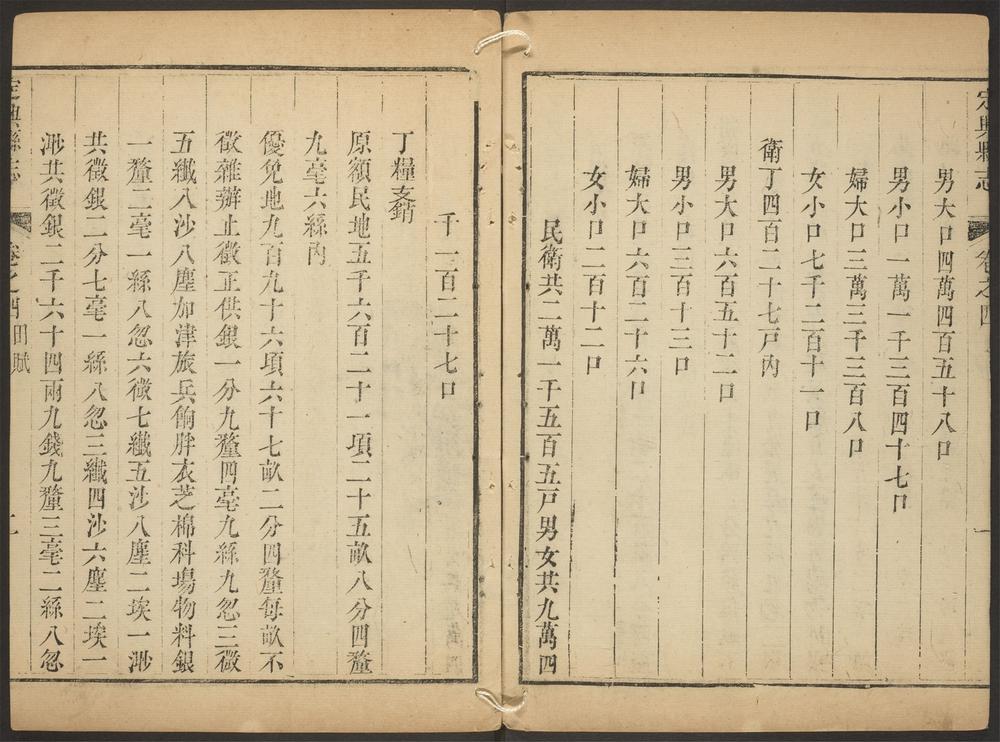 定興縣志
卷之四
男大口四萬四百五十八口
男小口一萬一千三百四十七口
婦大口三萬三千三百八口
女小口七千二百十一口
衛丁四百二十七戸内
男大口六百五十二口
男小口三百十三口
婦大口六百二十六口
女小口二百十二口
民衛共二萬一千五百五戸男女共九萬四
千一百二十七口
丁糧支銷
原額民地五千六百二十一項二十五畝八分四釐
九毫六絲内
優免地九百九十六項六十七畝二分四釐每畝不
徵雜辦止徵正供銀一分九釐四毫九絲九忽三微
五纖八沙八塵加津旅兵餉胖衣芝棉科場物料銀
一釐二毫一絲八忽六微七纖五沙八塵二埃一渺
共徵銀二分七毫一絲八忽三纖四沙六塵二埃一
渺共徵銀二千六十四兩九錢九釐三毫二絲八忽
定興縣志
卷之四
田賦